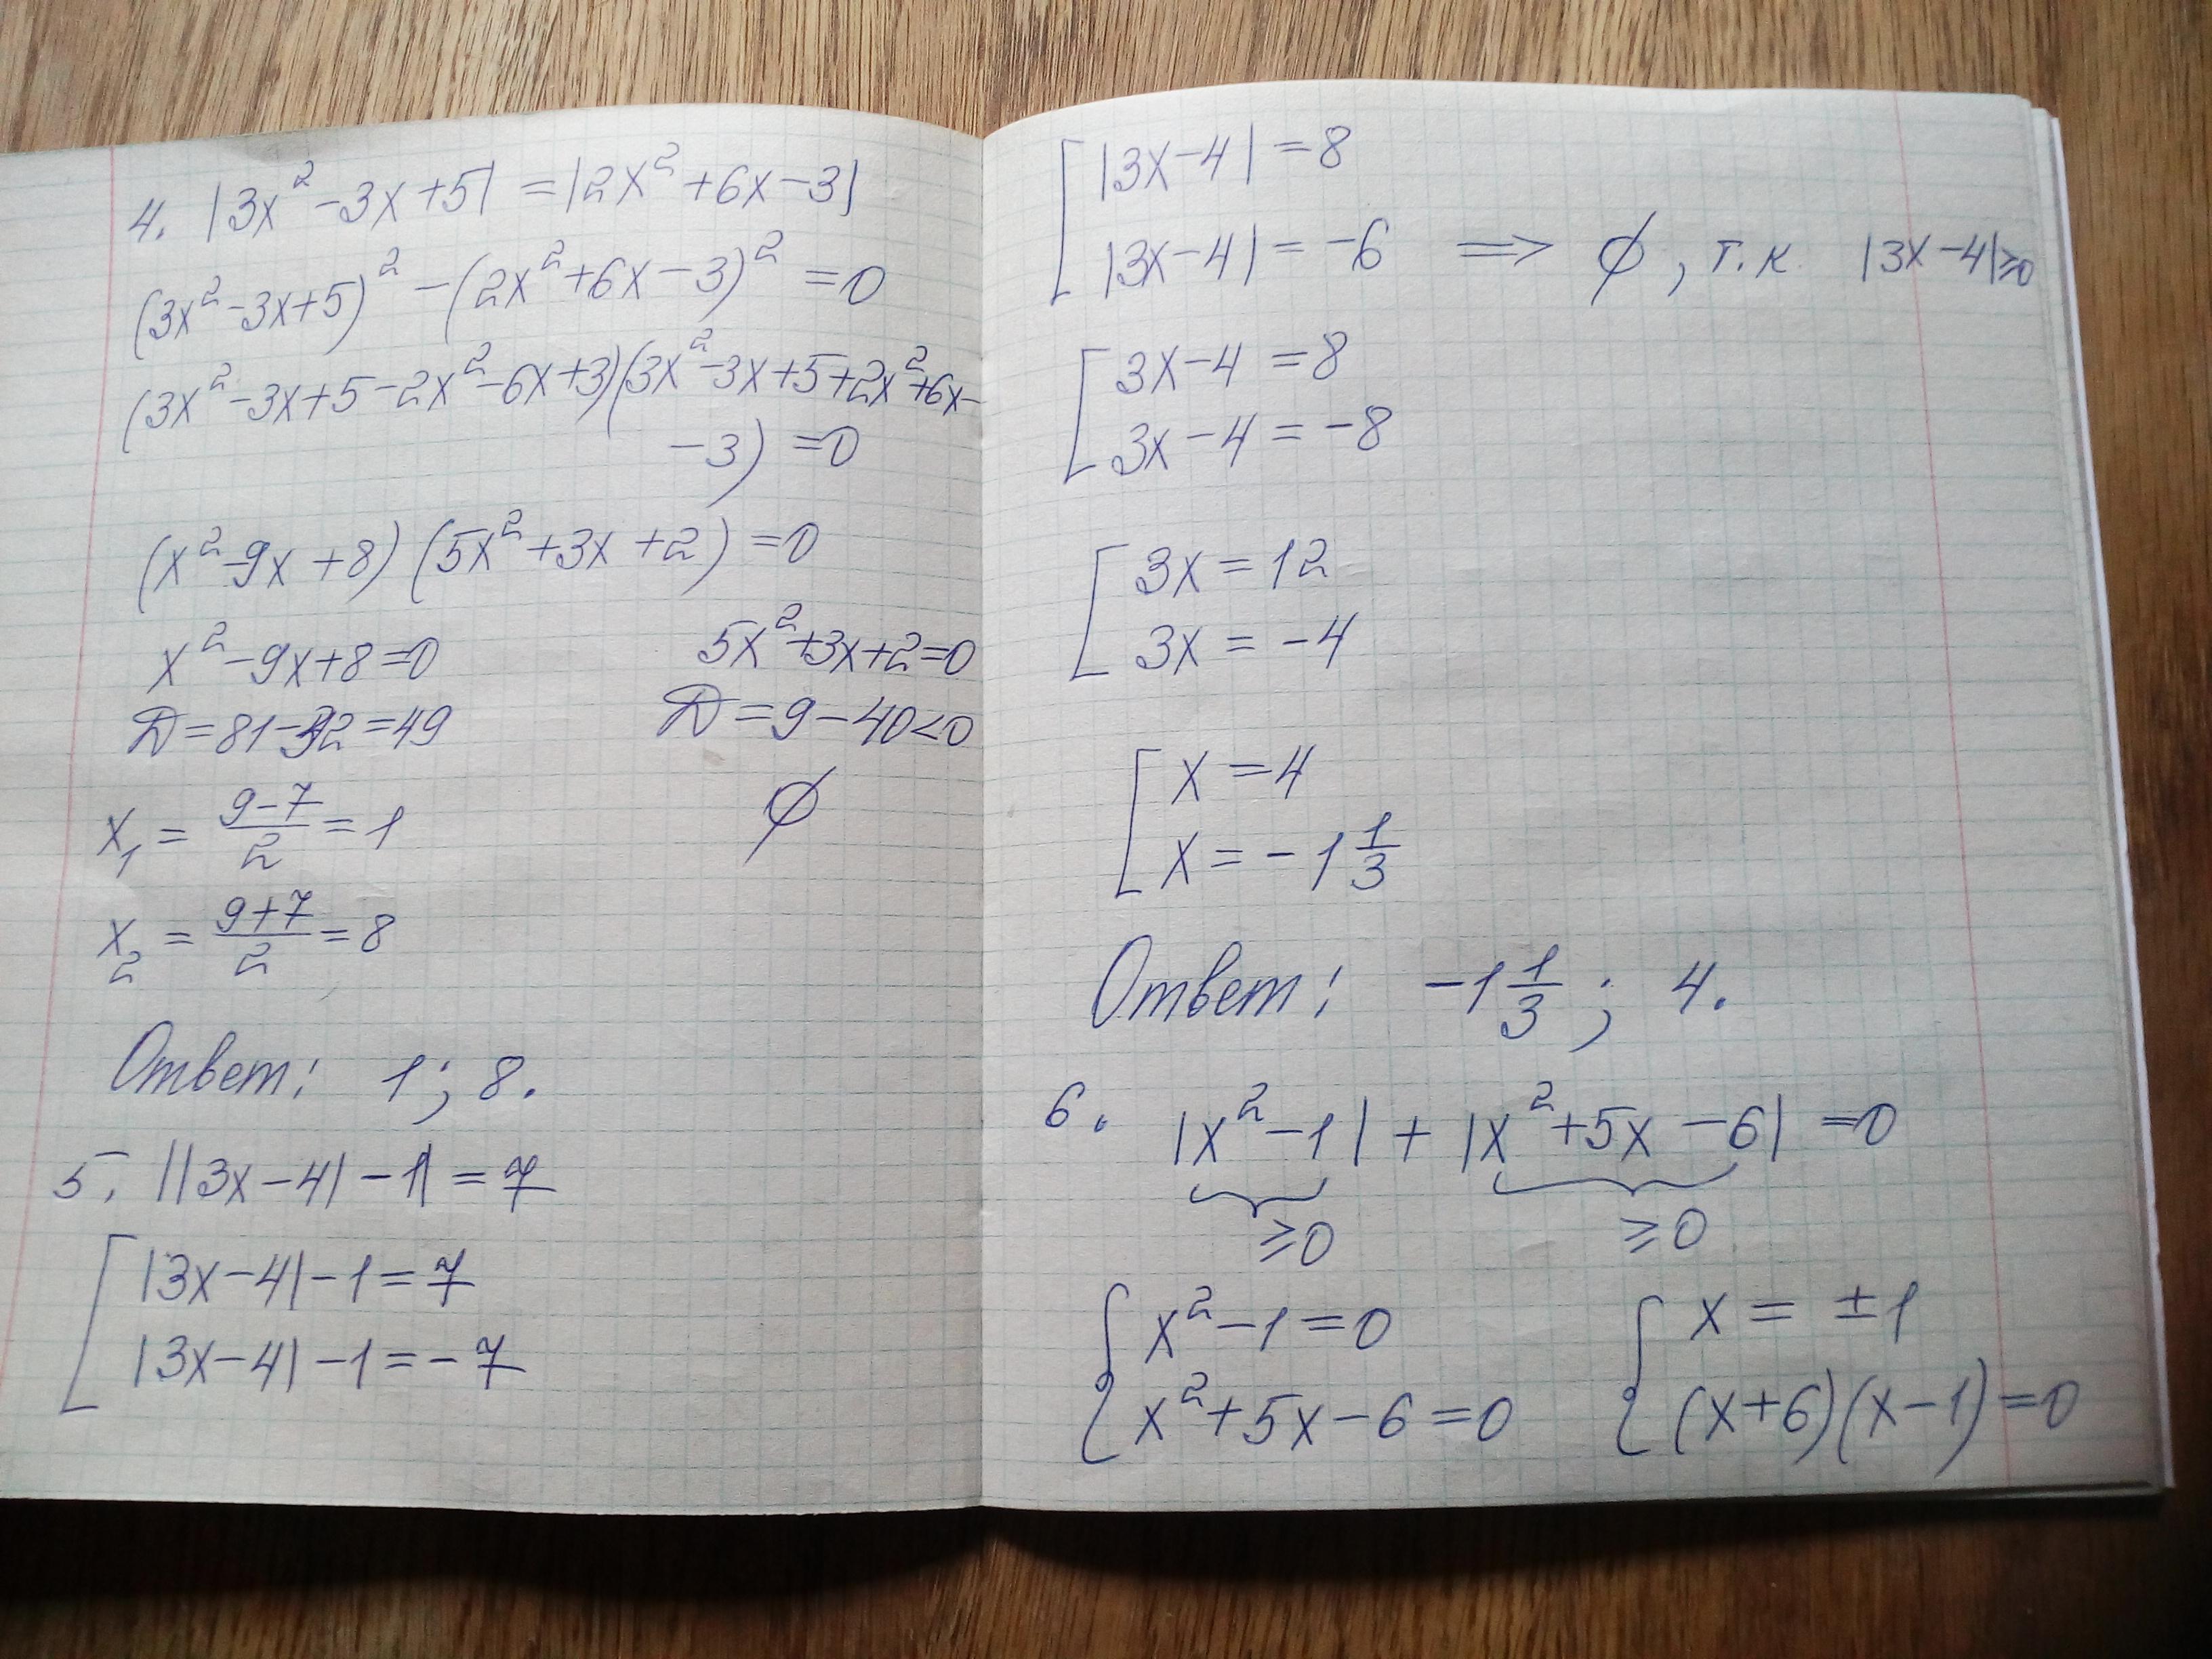 4. |3x² - 3x + 5| = |2x² + 6x - 3|
(3x² - 3x + 5)² - (2x² + 6x - 3)² = 0
(3x² - 3x + 5 - 2x² - 6x + 3)(3x² - 3x + 5 + 2x² + 6x -
- 3) = 0
(x² - 9x + 8)(5x² + 3x + 2) = 0
x² - 9x + 8 = 0 5x² + 3x + 2 = 0
D = 81 - 32 = 49 D = 9 - 40 < 0
x₁ = (9 - 7)/2 = 1 ∅
x₂ = (9 + 7)/2 = 8
Ответ: 1; 8.
5. ||3x - 4| - 1| = 7
[ |3x - 4| - 1 = 7
|3x - 4| - 1 = -7
[ |3x - 4| = 8
|3x - 4| = -6 ⟹ ∅, т.к |3x - 4| ≥ 0
[ 3x - 4 = 8
3x - 4 = -8
[ 3x = 12
3x = -4
[ x = 4
x = -1 1/3
Ответ: -1 1/3; 4.
6. |x² - 1| + |x² + 5x - 6| = 0
≥0 ≥0
{ x² - 1 = 0 { x = ±1
x² + 5x - 6 = 0 (x + 6)(x - 1) = 0